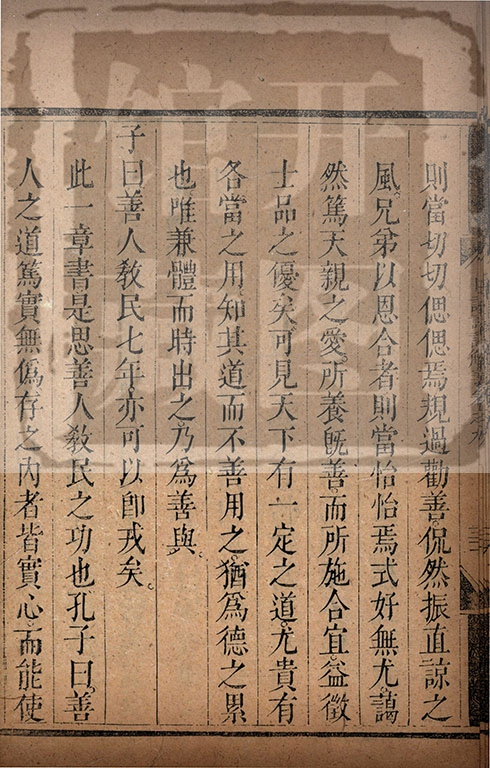 則當切切偲偲焉規過勸善侃然振直諒之
風兄弟以恩合者則當怡怡焉式好無尤藹
然篤天親之愛所養既善而所施合宜益徵
士品之優矣可見天下有一定之道尤貴有
各當之用知其道而不善用之猶為德之累
也唯兼體而時出之乃為善與
子曰善人教民七年亦可以卽戎矣。
此一章書是思善人教民之功也孔子曰善
人之道篤實無偽存之內者皆實心而能使